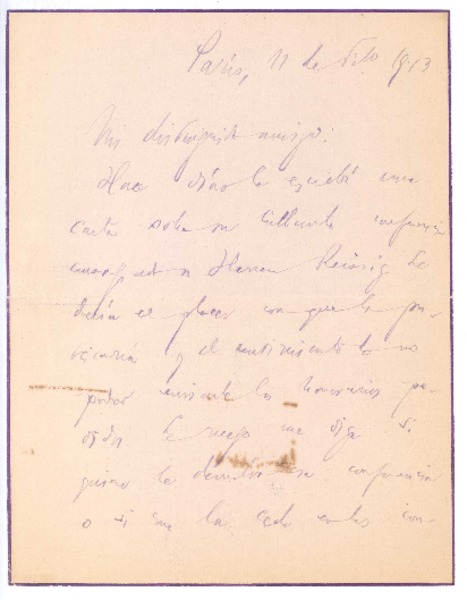 Paris, 11 de 1913
Mi distinguido amigo:
Hace días le escribí una
carta sobre su brillante conferencia
Herrera Reissig. Le
decía el placer con que la pu-
blicaría y el sentimiento de no
poder los honorarios pe-
didos. Le ruego me diga si
quiere le devuelva esa conferencia
o si me la cede en las con-